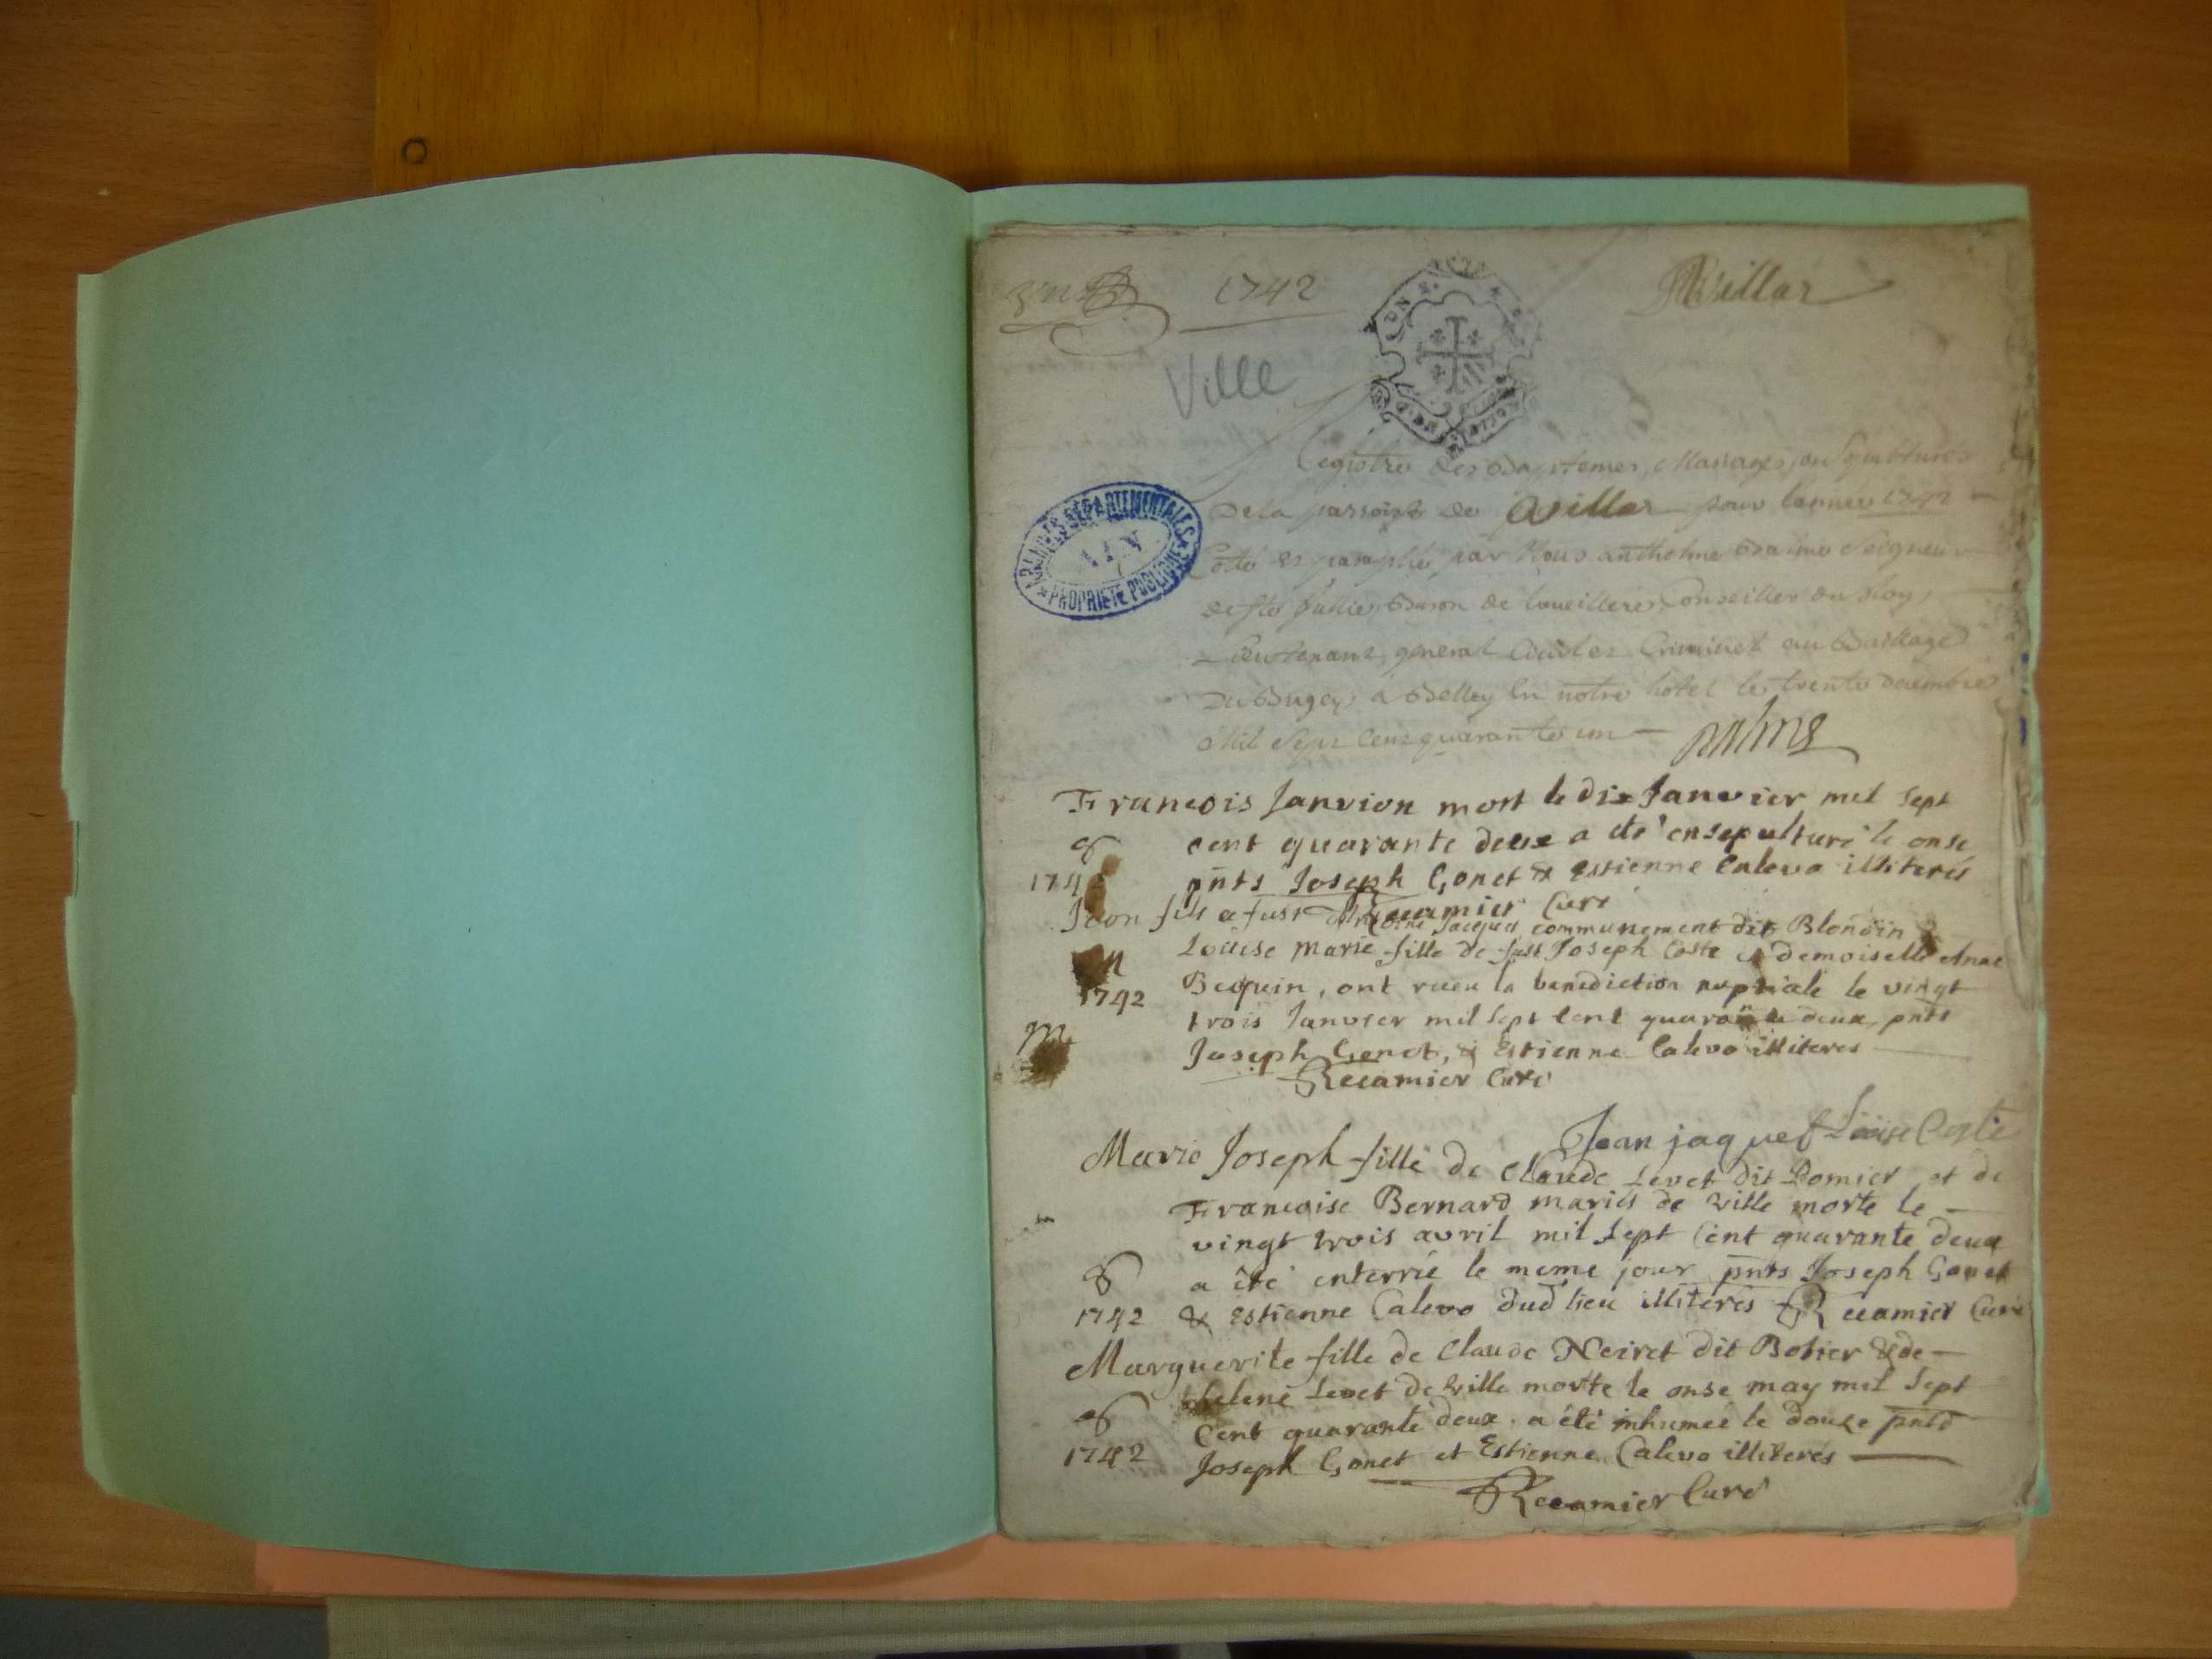 1742
Villar
Ville
ARCHIVES DEPARTEMENTALES
AIN
PROPRIETE PUBLIQUE
Registre des Baptemes, Mariages, ou Sepultures
De la parroisse de Villar pour lannee 1742
Cotté et paraphé par Nous anthelme Balme Seigneur
de Ste Jullie, Baron de Conseiller du Roy,
Lieutenant general Civil et Criminel au Bailliage
Du Bugey à Belley En notre hôtel le trente decembre
Mil Sept Cent quarante un
Balme
Francois Janvion mort le dix Janvier mil sept
cent quarante deux a été ensepulturé le onse
1742
pnts Joseph Gonet & Estienne Calevo illiterés
Recamier Curé
Jean fils a fust Antoine Jacques communement dit Blondin &
Loüise Marie fille de fust Joseph Coste & demoiselle Anne
M
1742
Bequin, ont recu la benediction nuptiale le vingt
trois Janvier mil sept cent quarante deux, pnts
M
Joseph Gonet, & Estienne Calevo illiteres
Recamier Curé
Jean jaques Loüise Coste
Marie Joseph fille de Claude Levet dit Pomier et de
Francoise Bernard mariés de Ville morte le
vingt trois avril mil sept cent quarante deux
a été enterrée le meme jour pnts Joseph Gonet
1742
& Estienne Calevo dud lieu illiterés Recamier Curé
Marguerite fille de Claude Neiret dit Botier & de
helene Levet de Ville morte le onse may mil sept
cent quarante deux a été inhumée le douze pnts
1742
Joseph Gonet et Estienne Calevo illiterés
Recamier Curé